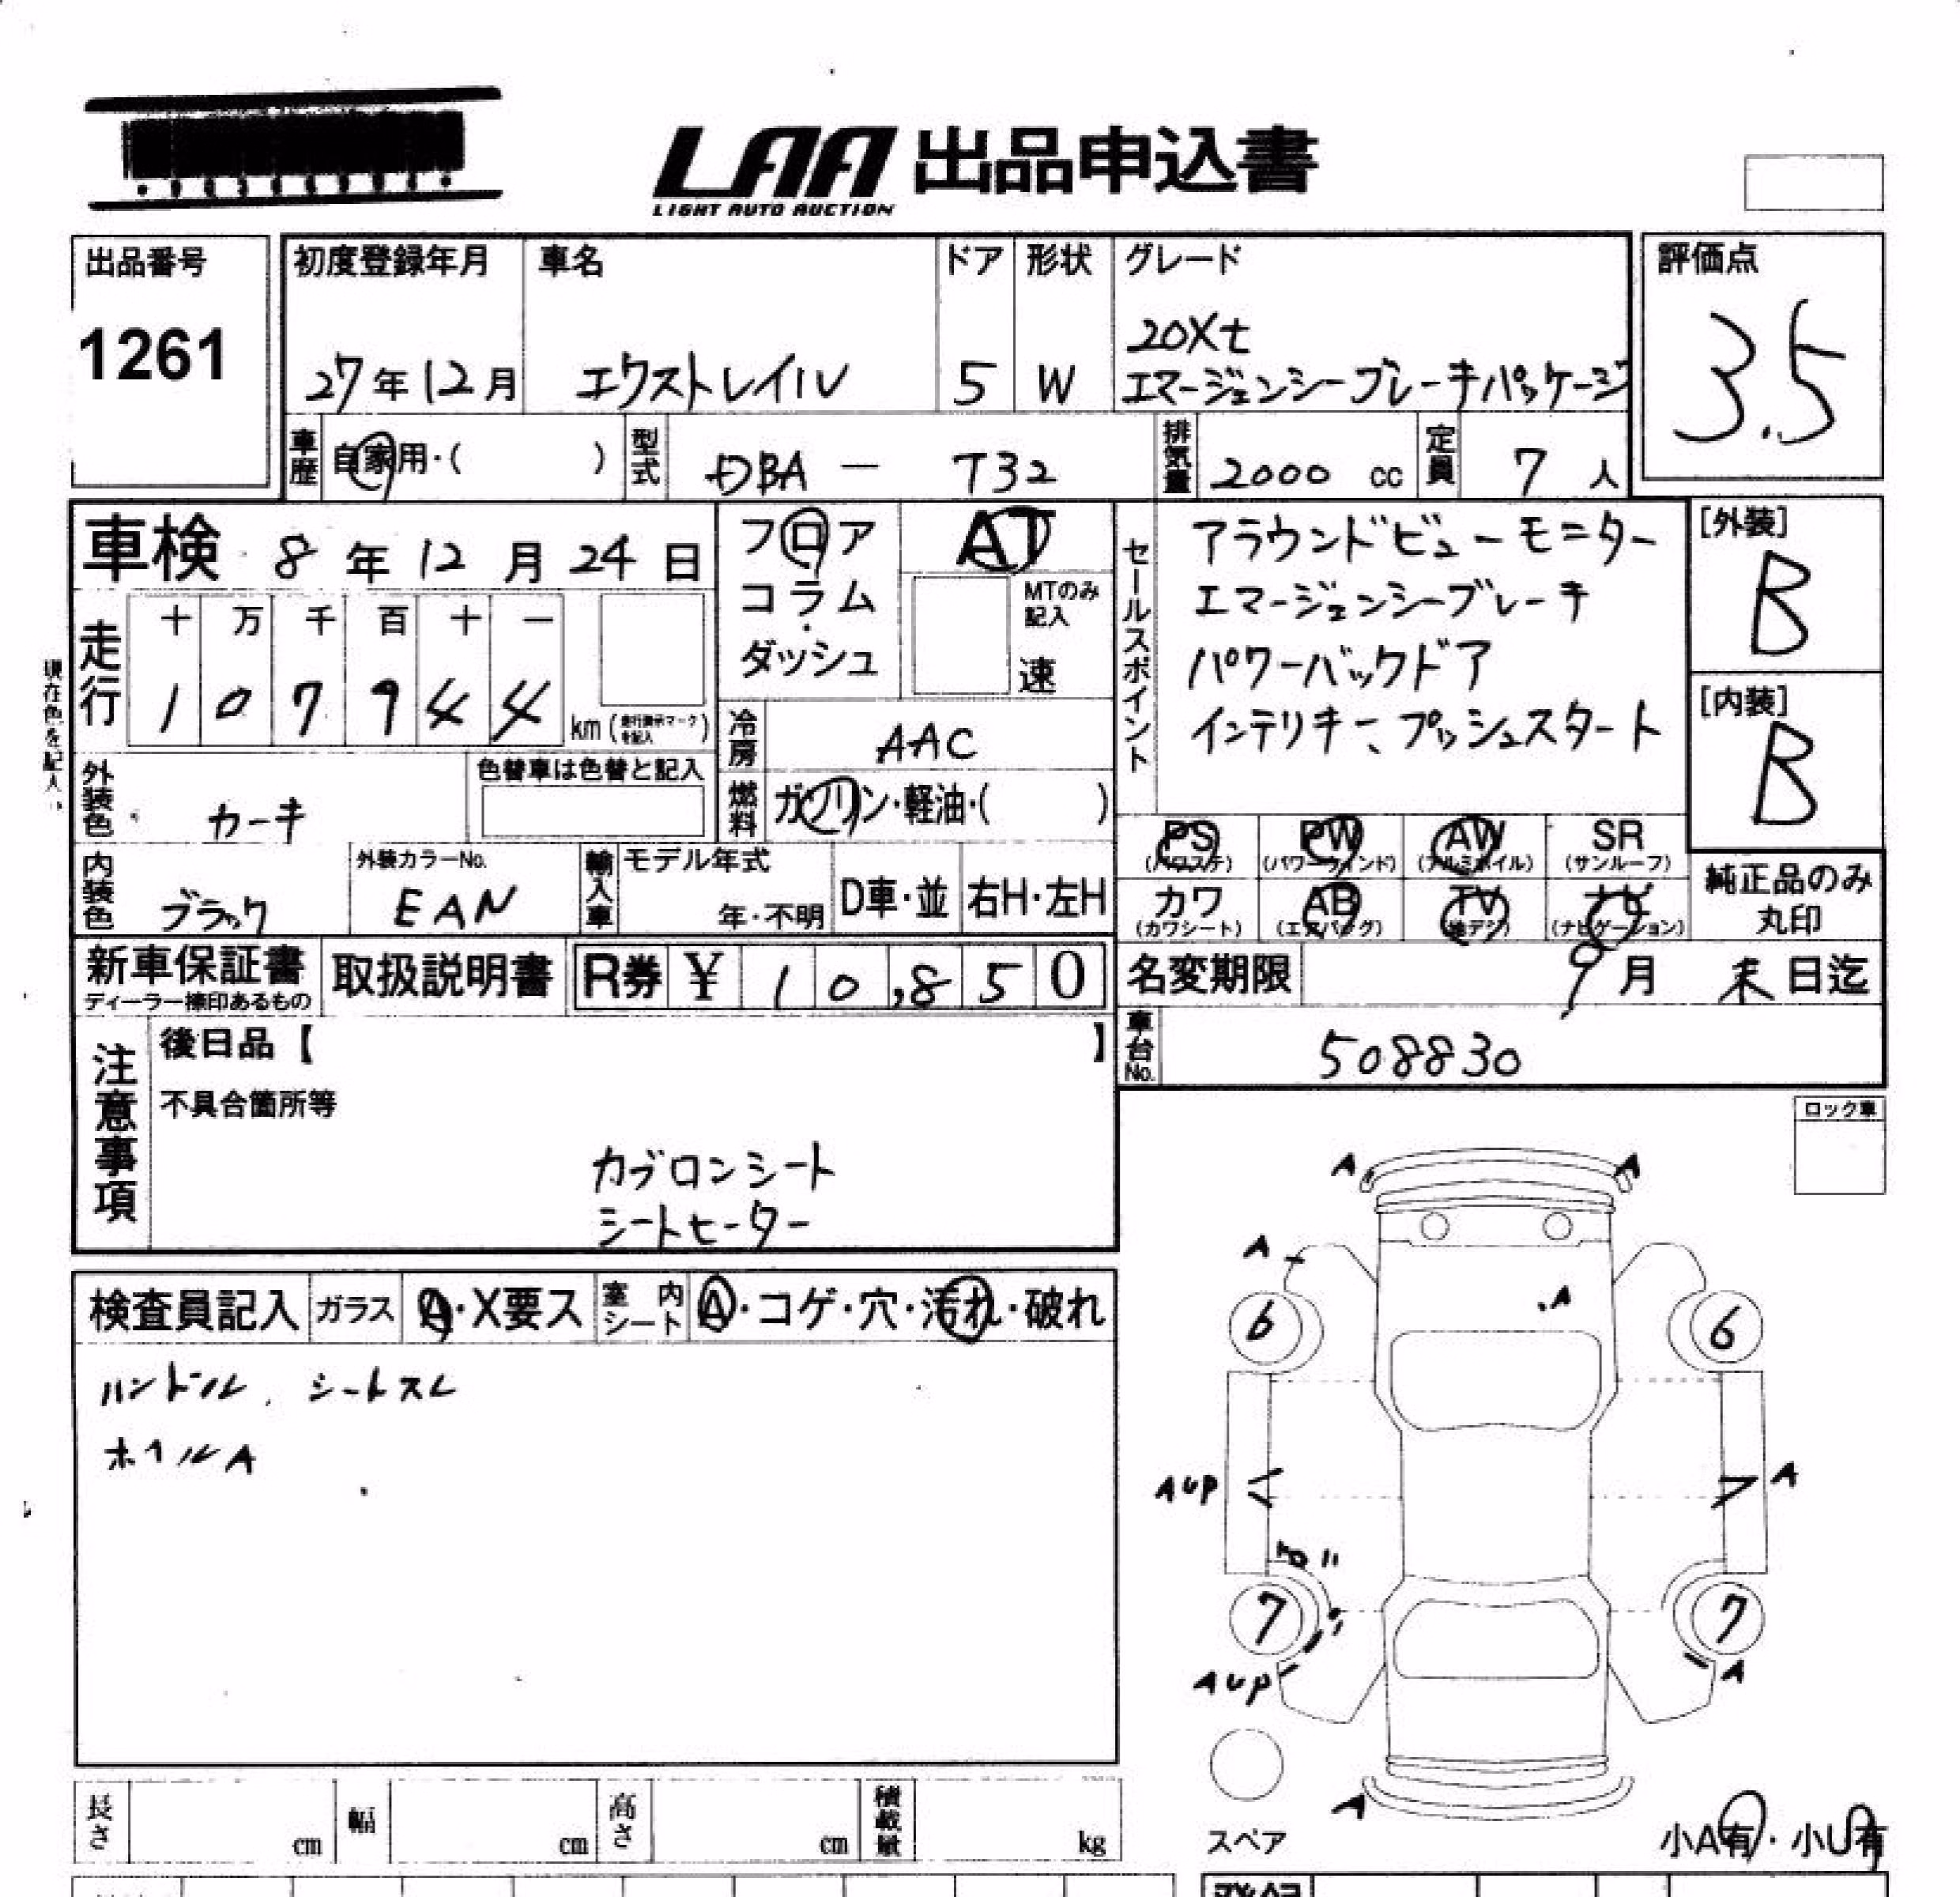 LAA 出品申込書
LIGHT AUTO AUCTION
出品番号
1261
初度登録年月
27年12月
車名
エクストレイル
ドア
5
形状
W
グレード
20Xt
エマージェンシーブレーキパッケージ
評価点
3.5
車歴
自家用・( )
型式
DBA — T32
排気量
2000 cc
定員
7 人
車検 8 年 12 月 24 日
フロア
コラム
・
ダッシュ
AT
MTのみ
記入
速
走行
十 万 千 百 十 一
1 0 7 9 4 4
km (走行表示マークを記入)
現在色を記入
セールスポイント
アラウンドビューモニター
エマージェンシーブレーキ
パワーバックドア
インテリキー、プッシュスタート
[外装]
B
[内装]
B
冷房
AAC
燃料
ガソリン・軽油・( )
外装色
カーキ
色替車は色替と記入
内装色
ブラック
外装カラーNo.
EAN
輸入車
モデル年式
年・不明
D車・並
右H・左H
PS (パワステ)
PW (パワーウィンド)
AW (アルミホイル)
SR (サンルーフ)
カワ (カワシート)
AB (エアバッグ)
TV (地デジ)
ナビ (ナビゲーション)
純正品のみ
丸印
新車保証書
ディーラー捺印あるもの
取扱説明書
R券 ¥ 10,850
名変期限 9月 末日迄
車台No.
508830
注意事項
後日品【 】
不具合箇所等
カブロンシート
シートヒーター
ロック車
検査員記入
ガラス
A・X要ス
室内
シート
A・コゲ・穴・汚れ・破れ
ハンドル、シートスレ
ホイルA
A
A
A
.A
6
6
AUP
A
7
7
AUP
A
A
スペア
小A有・小U有
長さ
cm
幅
cm
高さ
cm
積載量
kg